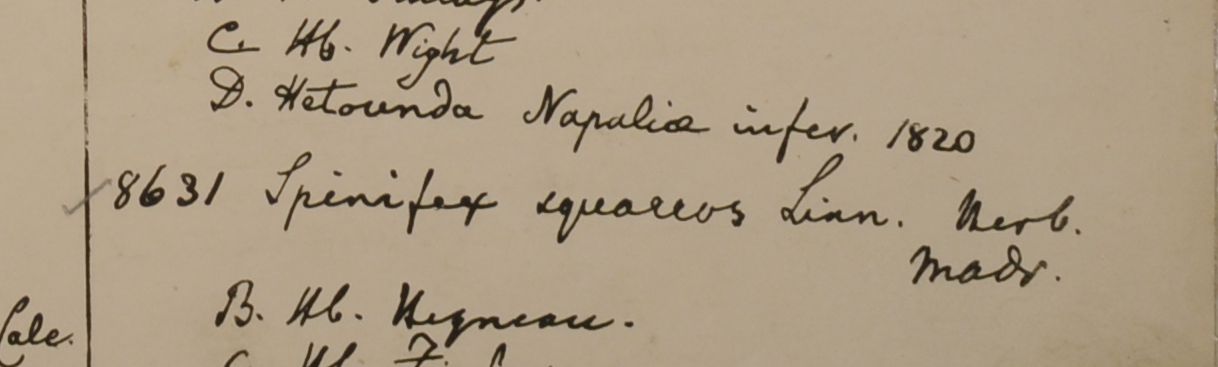 C. Hb. Wight
D. Hetounda Napaliæ infer. 1820
8631 Spinifex squareus Linn. Herb.
Madr.
B. Hb. Heyneau.
Cale.
C. Hb.